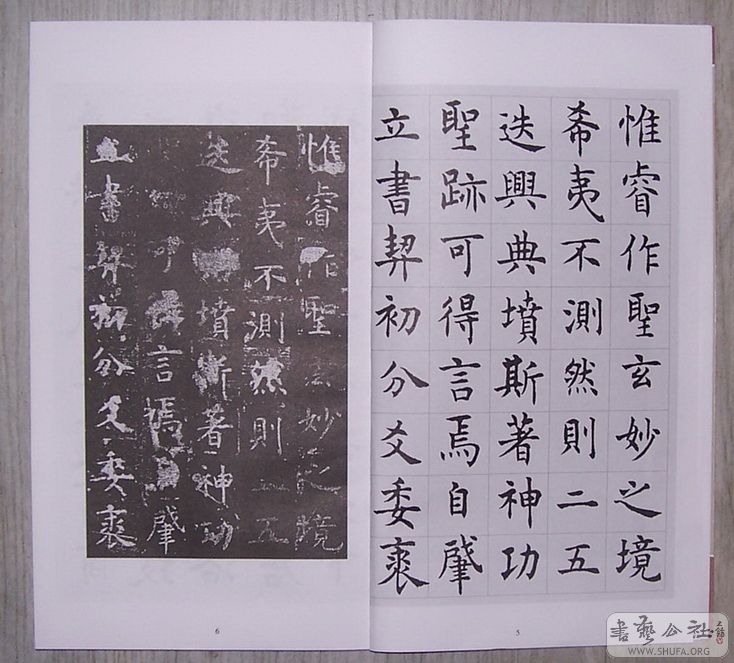 惟睿作聖玄妙之境
希夷不測然則二五
迭興典墳斯著神功
聖跡可得言焉自肇
立書契初分爻委裘
5
惟睿作聖玄妙之境
希夷不測然則二五
迭興墳斯著神功
可得言焉肇
立書契初分爻委裘
6
書藝公社
WWW.SHUFA.ORG